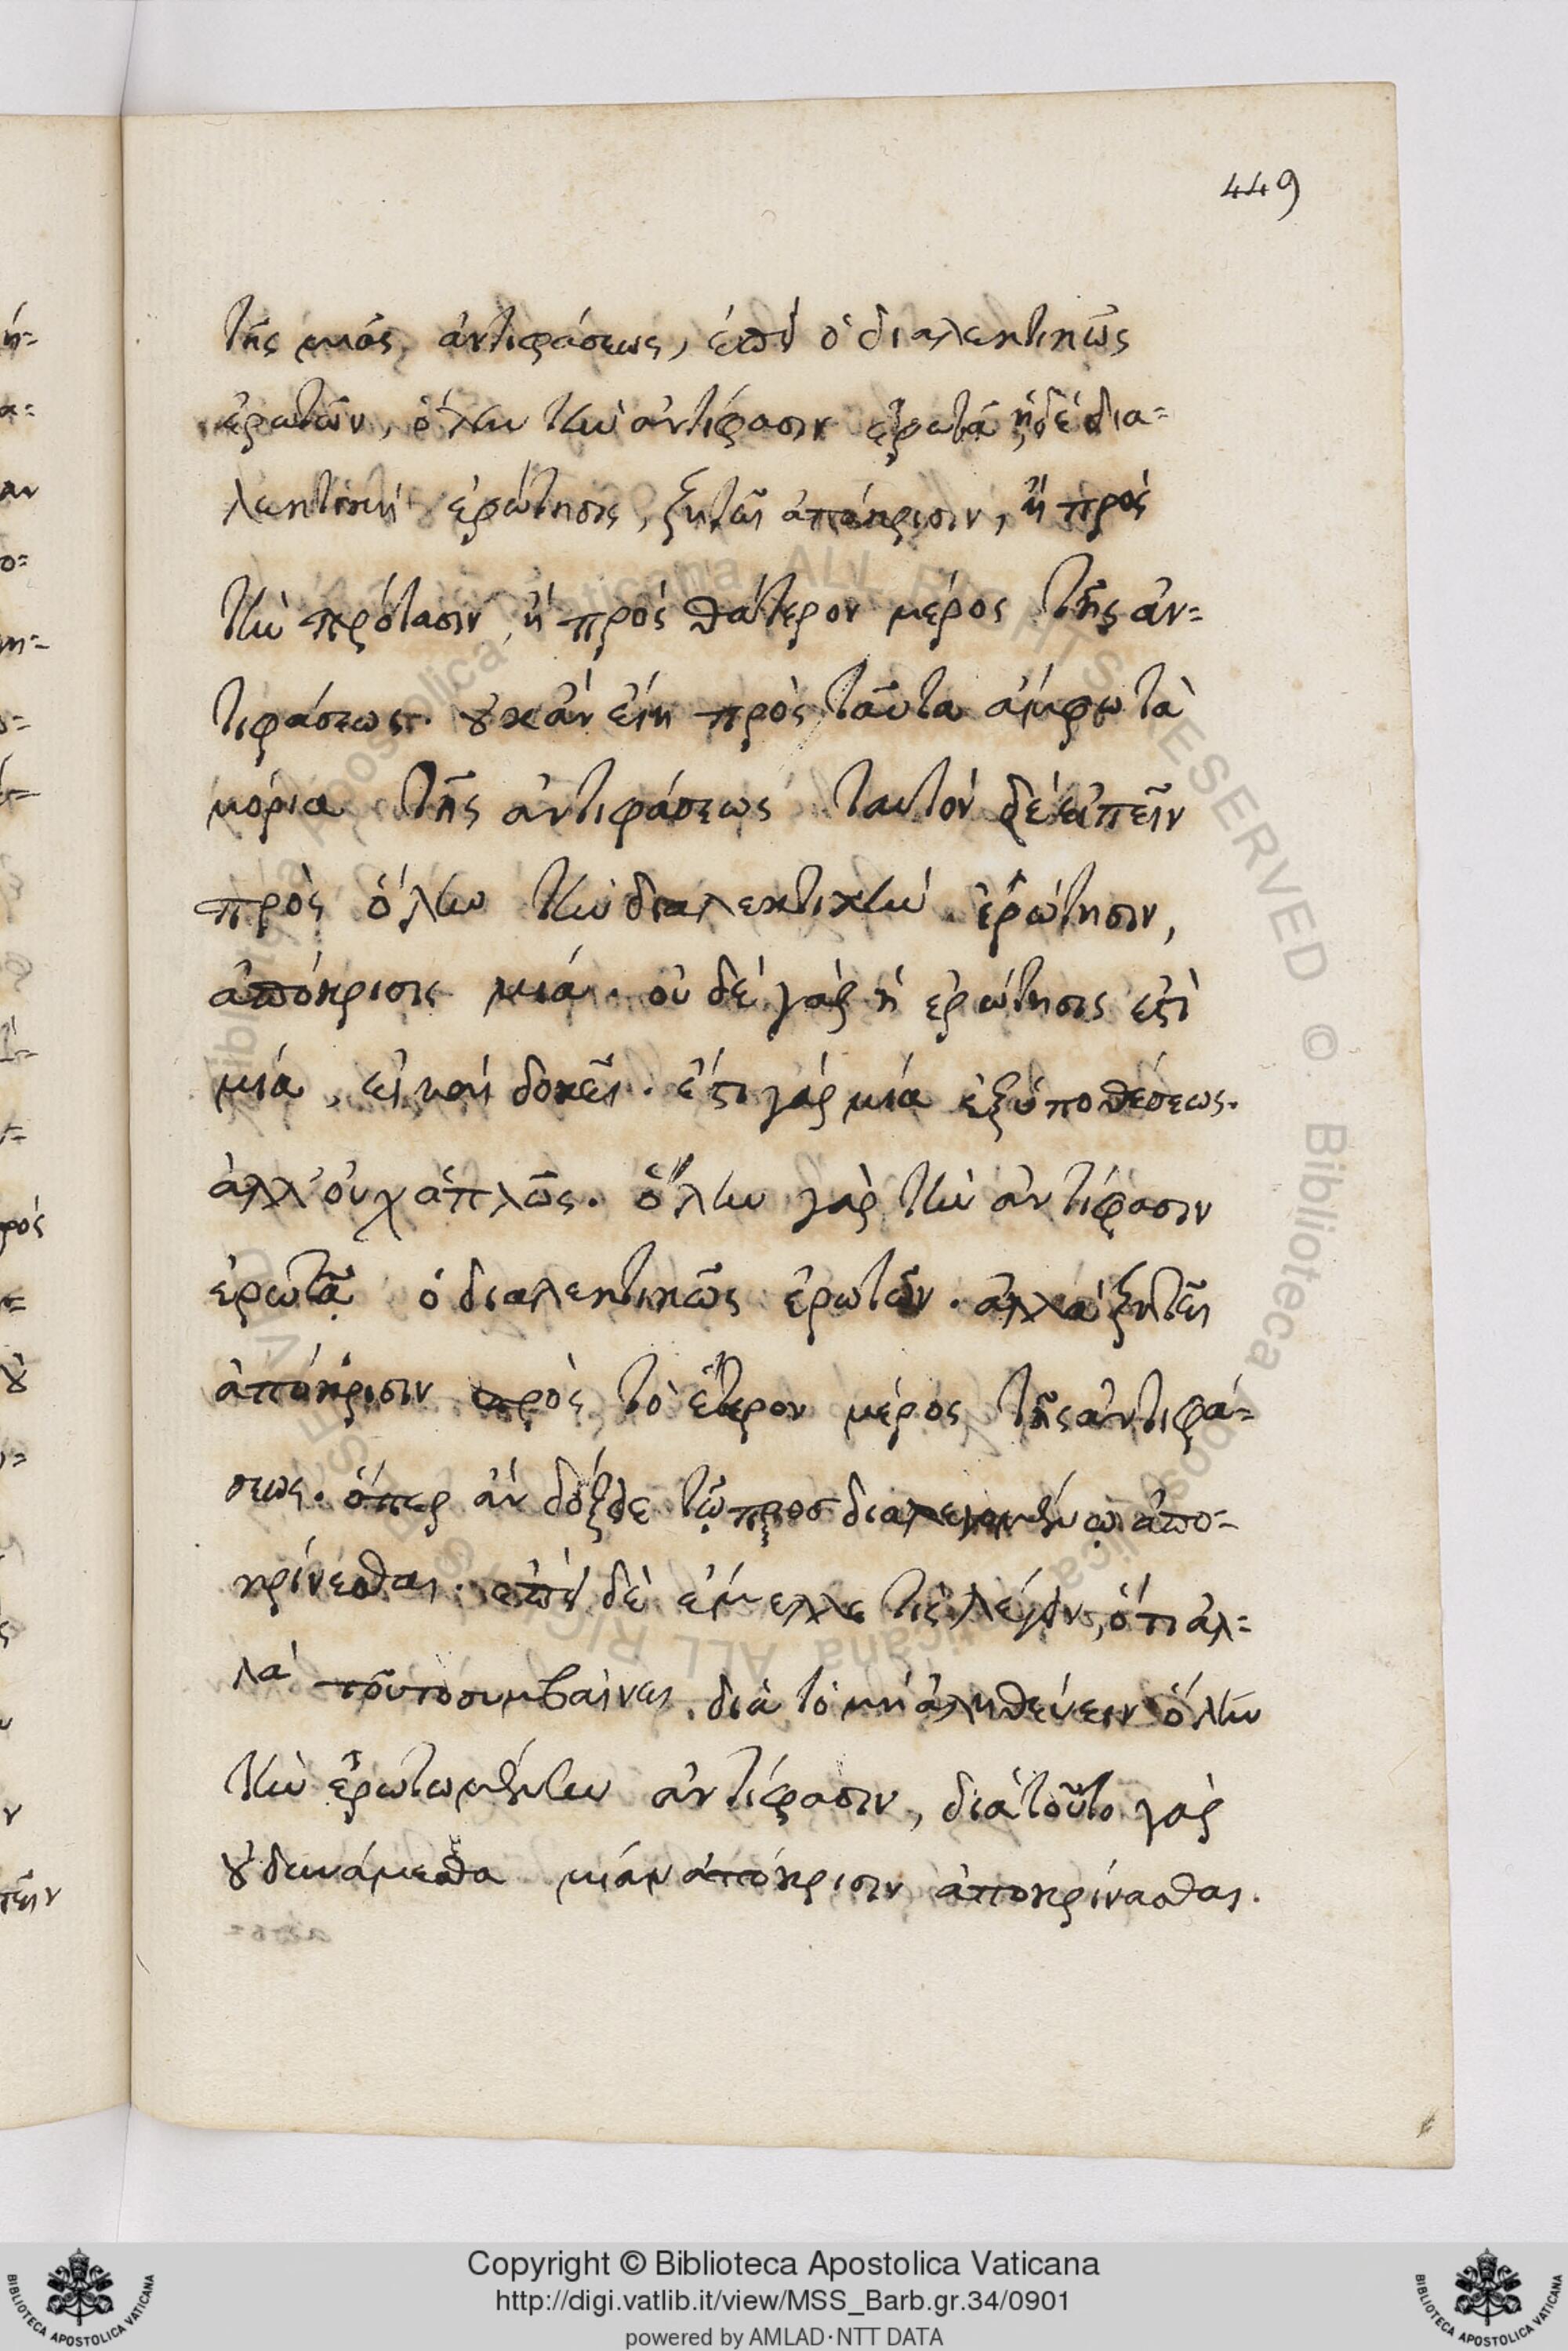 449
τῆς μιᾶς ἀντιφάσεως, ἐπεὶ ὁ διαλεκτικῶς
ἐρωτῶν, ὅλην τὴν ἀντίφασιν ἐρωτᾷ ἡ δὲ δια=
λεκτικὴ ἐρώτησις, ζητεῖ ἀπόκρισιν, ἢ πρὸς
τὴν πρότασιν, ἢ πρὸς θάτερον μέρος τῆς ἀν=
τιφάσεως. οὐκ ἂν εἴη πρὸς ταῦτα ἄμφω τὰ
μόρια τῆς ἀντιφάσεως ταυτὸν δὲ εἰπεῖν
πρὸς ὅλην τὴν διαλεκτικὴν ἐρώτησιν,
ἀπόκρισις μιά. οὐδὲ γὰρ ἡ ἐρώτησις ἐστὶ
μιά, εἰ καὶ δοκεῖ. ἔστι γὰρ μιά ἐξ ὑποθέσεως.
ἀλλ' οὐχ ἁπλῶς. ὅλην γὰρ τὴν ἀντίφασιν
ἐρωτᾷ ὁ διαλεκτικῶς ἐρωτῶν. ἀλλὰ ζητεῖ
ἀπόκρισιν πρὸς τὸ ἕτερον μέρος τῆς ἀντιφά=
σεως. ὅπερ ἂν δόξῃ τῷ προσδιαλεγομένῳ ἀπο=
κρίνεσθαι. ἐπεὶ δὲ ἔμελλε τὶς λέγειν, ὅτι ἀλ=
λὰ τοῦτο συμβαίνει διὰ τὸ μὴ ἀληθεύειν ὅλην
τὴν ἐρωτωμένην ἀντίφασιν, διὰ τοῦτο γὰρ
οὐ δυνάμεθα μίαν ἀπόκρισιν ἀποκρίνασθαι.
Copyright © Biblioteca Apostolica Vaticana
http://digi.vatlib.it/view/MSS_Barb.gr.34/0901
powered by AMLAD·NTT DATA